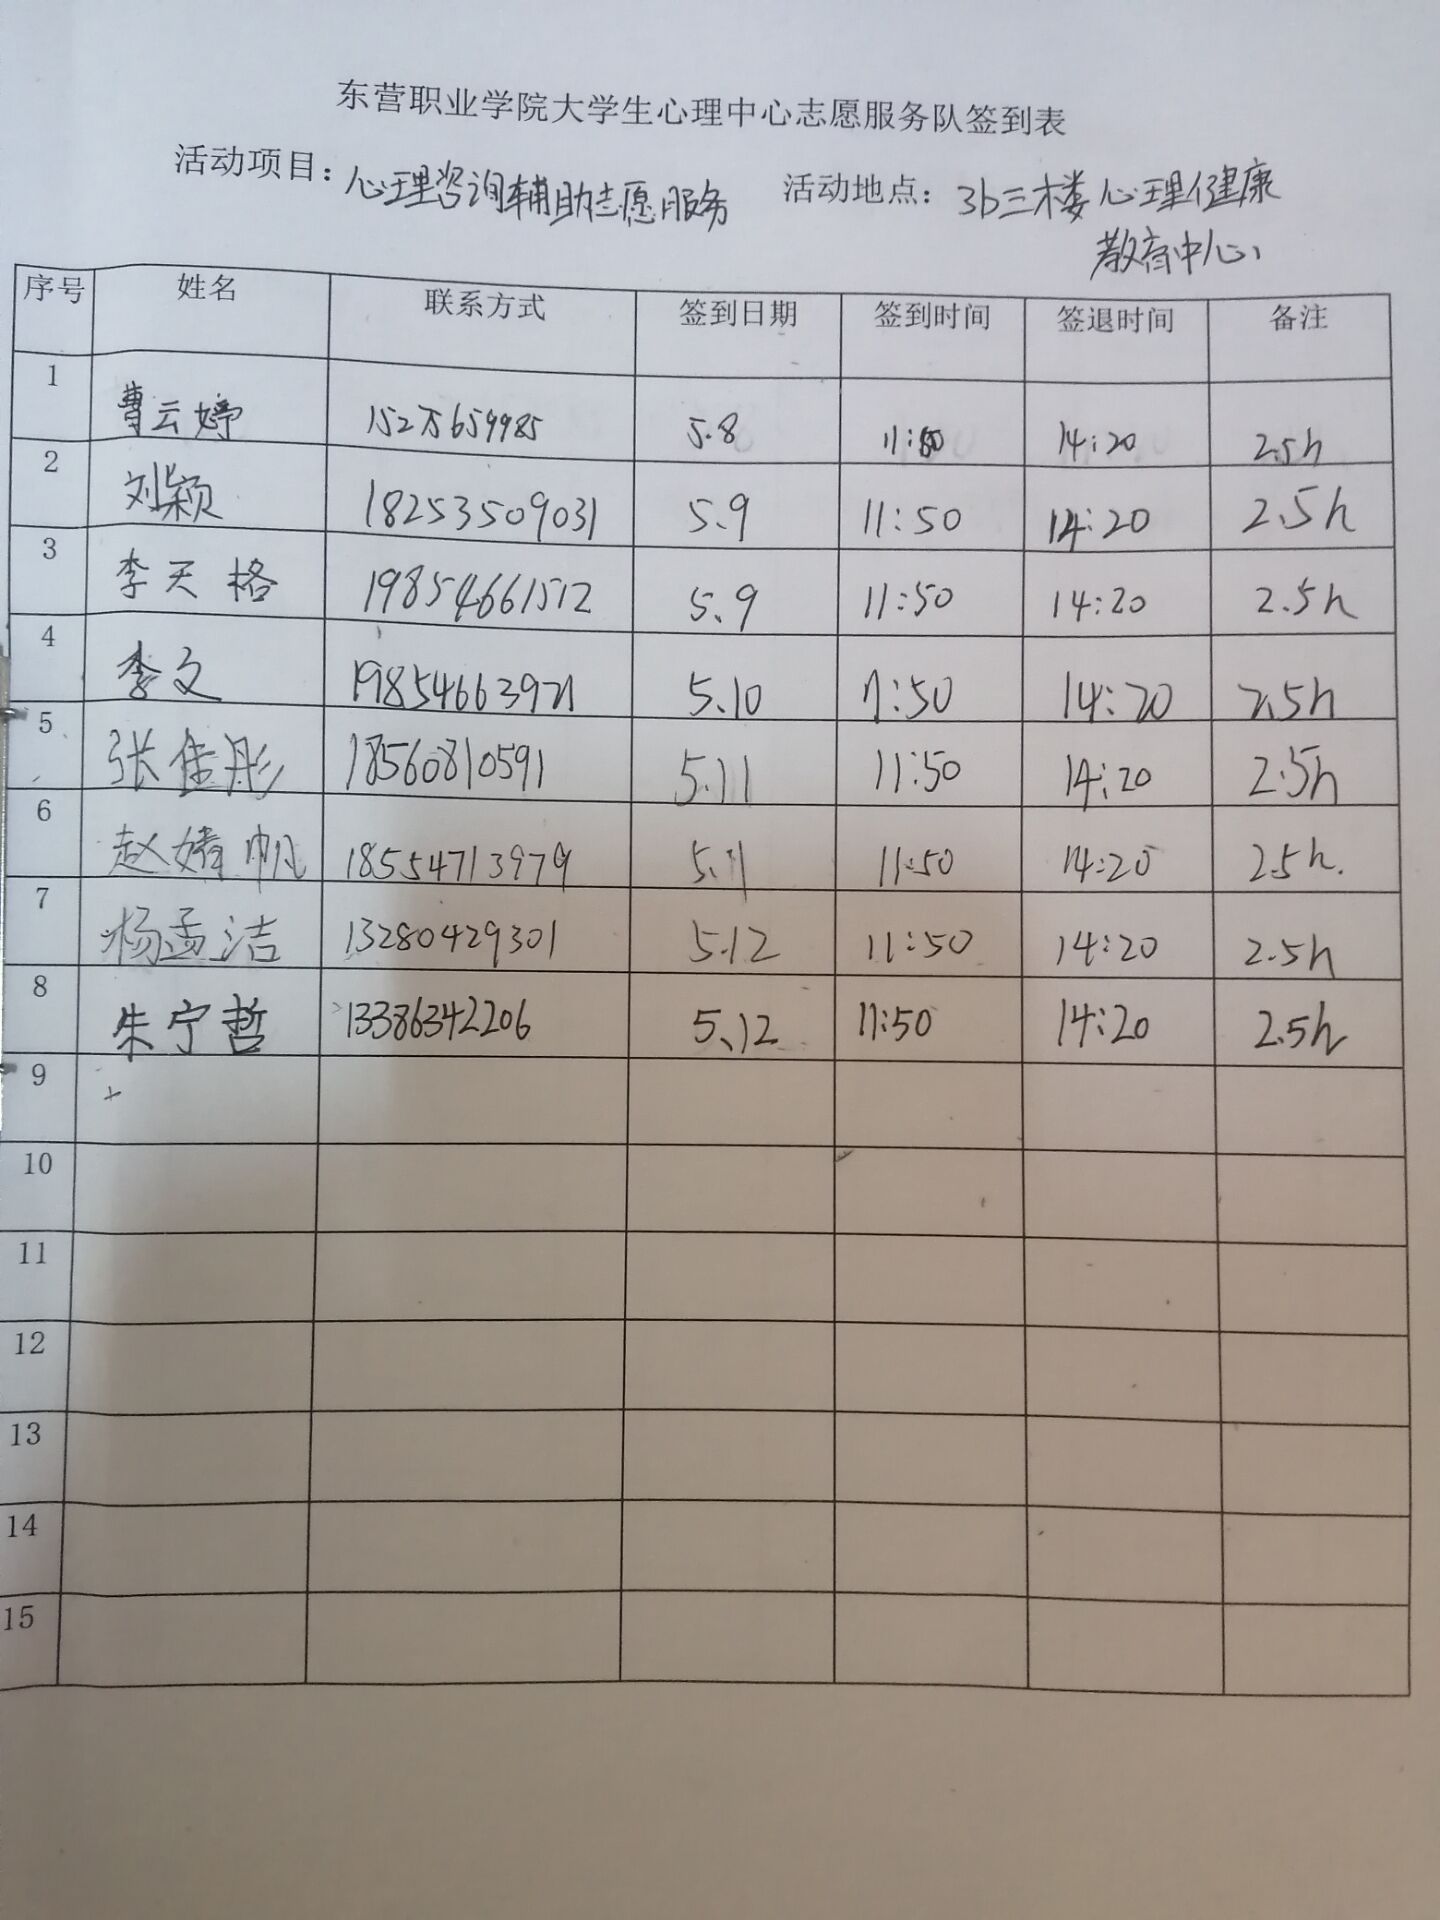 东营职业学院大学生心理中心志愿服务队签到表
活动项目：心理咨询辅助志愿服务 活动地点：3b三楼心理健康
教育中心
序号 姓名 联系方式 签到日期 签到时间 签退时间 备注
1 曹云婷 5.8 11:50 14:20 2.5h
2 刘颖 18253509031 5.9 11:50 14:20 2.5h
3 李天格 19854661512 5.9 11:50 14:20 2.5h
4 李文 19854663921 5.10 11:50 14:20 2.5h
5 张佳彤 18560810591 5.11 11:50 14:20 2.5h
6 赵婧帆 18554713979 5.11 11:50 14:20 2.5h.
7 杨孟洁 13280429301 5.12 11:50 14:20 2.5h
8 朱宁哲 13386342206 5.12 11:50 14:20 2.5h
9
10
11
12
13
14
15